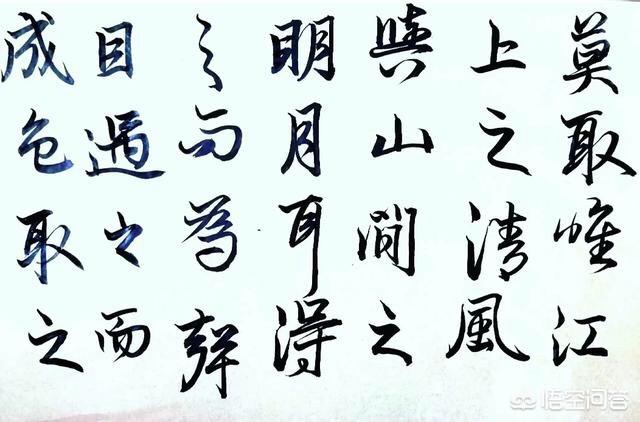 莫取惟江
上之清風
與山間之
明月耳得
之而為聲
目遇之而
成色取之
悟空问答